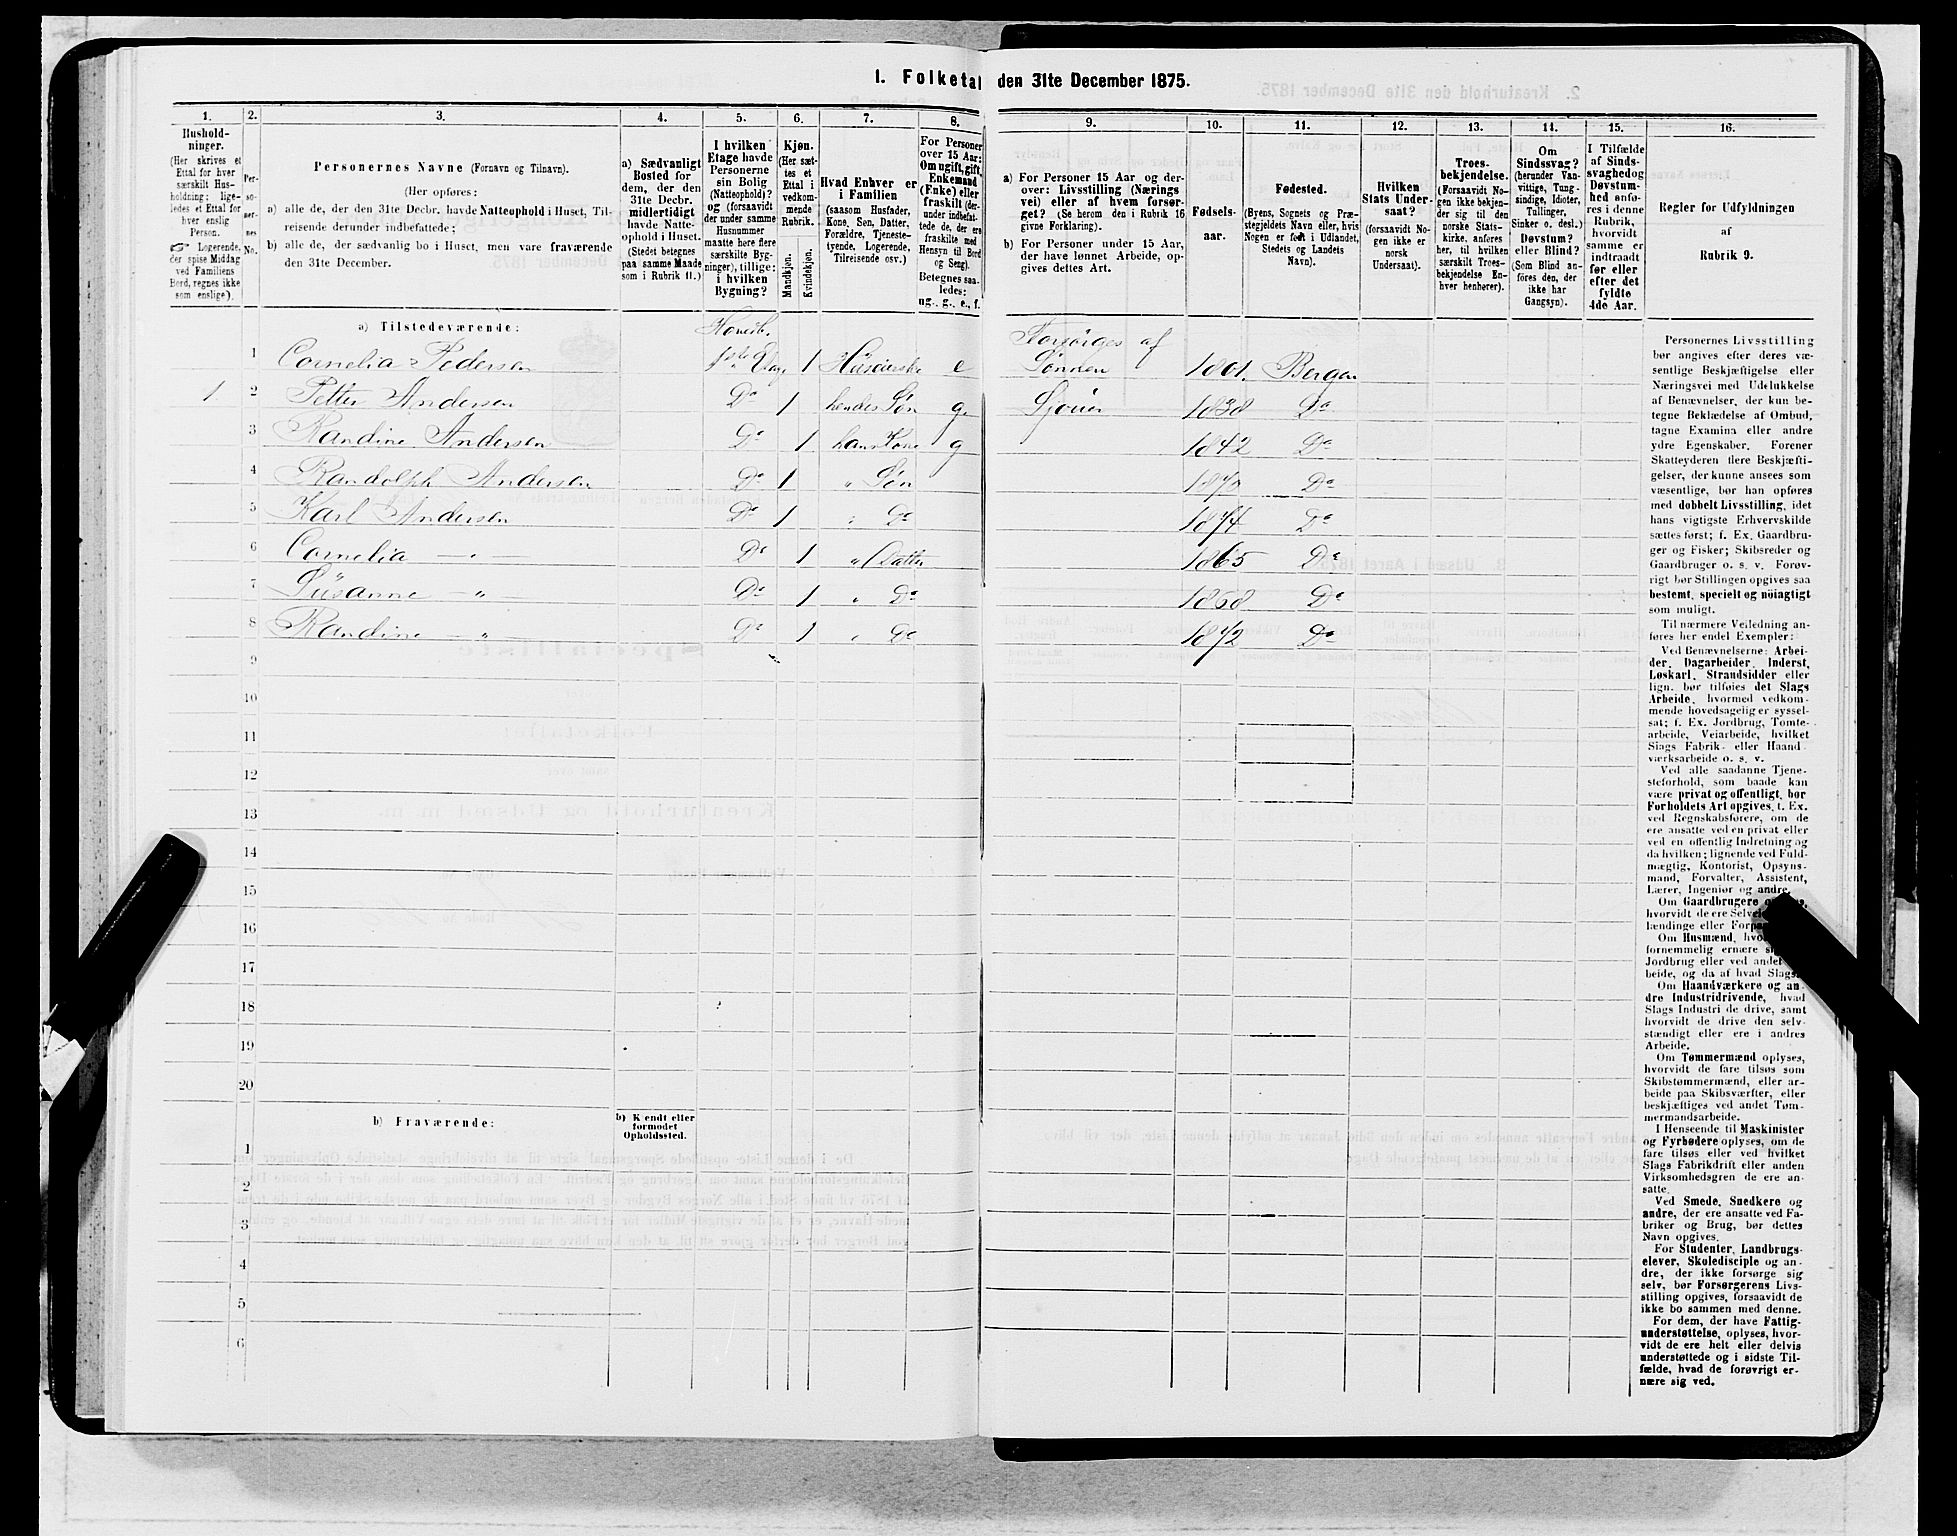 1. Folketal den 31te December 1875.
1.
Hushold-
ninger.
(Her skrives et
Ettal for hver
særskilt Hus-
holdning; lige-
ledes et Ettal for
hver enslig
Person.
☞ Logerende,
der spise Middag
ved Familiens
Bord, regnes ikke
som enslige).
2.
Per-
so-
ner-
nes
No.
3.
Personernes Navne (Fornavn og Tilnavn).
(Her opføres:
a) alle de, der den 31te Decbr. havde Natteophold i Huset, Til-
reisende derunder indbefattede;
b) alle de, der sædvanlig bo i Huset, men vare fraværende
den 31te December.
4.
a) Sædvanligt
Bosted for
dem, der den
31te Decbr.
midlertidigt
havde Natte-
ophold i Huset.
(Stedet betegnes
paa samme Maade
som i Rubrik 11.)
5.
I hvilken
Etage havde
Personerne
sin Bolig
(Natteophold)?
og (forsaavidt
der under samme
Husnummer
maatte høre flere
særskilte Byg-
ninger), tillige:
i hvilken
Bygning?
6.
Kjøn.
(Her sæt-
tes et
Ettal i
vedkom-
mende
Rubrik.
Mandkjøn.
Kvindekjøn.
7.
Hvad Enhver er
i Familien
(saasom Husfader,
Kone, Søn, Datter,
Forældre, Tjeneste-
tyende, Logerende,
Tilreisende osv.)
8.
For Personer
over 15 Aar:
Om ugift, gift,
Enkemand
(Enke) eller
fraskilt (der-
under indbefat-
tede de, der ere
fraskilte med
Hensyn til Bord
og Seng).
Betegnes saa-
ledes:
ug., g., e., f.
9.
a) For Personer 15 Aar og der-
over: Livsstilling (Nærings
vei) eller af hvem forsør-
get? (Se herom den i Rubrik 16
givne Forklaring).
b) For Personer under 15 Aar,
der have lønnet Arbeide, op-
gives dettes Art.
10.
Fødsels-
aar.
11.
Fødested.
(Byens, Sognets og Præ-
stegjeldets Navn eller, hvis
Nogen er født i Udlandet,
Stedets og Landets
Navn).
12.
Hvilken
Stats Under-
saat?
(forsaavidt No-
gen ikke er
norsk
Undersaat).
13.
Troes-
bekjendelse.
(Forsaavidt No-
gen ikke bekjen-
der sig til den
norske Stats-
kirke, anføres
her, til hvilken
særskilt Troes-
bekjendelse En-
hver henhører).
14.
Om
Sindssvag?
(herunder Van-
vittige, Tung-
sindige, Idioter,
Tullinger,
Sinker o. desl.)
Døvstum?
eller Blind?
(Som Blind an-
føres den, der
ikke har
Gangsyn).
15.
I Tilfælde
af Sinds-
svaghed og
Døvstum-
hed anfø-
res i denne
Rubrik,
hvorvidt
samme er
indtraadt
før eller
efter det
fyldte
4de Aar.
16.
Regler for Udfyldningen
af
Rubrik 9.
a) Tilstedeværende:
1 Cornelia Pedersen 1ste Etage 1 Huseierske e Forsørges af Sønnen 1801. Bergen
1 2 Petter Andersen Do 1 hendes Søn g. Sjouer 1838 Do
3 Randine Andersen Do 1 hans Kone g 1842 Do
4 Randolph Andersen Do 1 " Søn 1870 Do
5 Karl Andersen Do 1 " Do 1874 Do
6 Cornelia — " — Do 1 " Datter 1865 Do
7 Süsanne — " — Do 1 " Do 1868 Do
8 Randine — " — Do 1 " Do 1872 Do
9
10
11
12
13
14
15
16
17
18
19
20
b) Fraværende:
b) Kjendt eller
formodet
Opholdssted.
1
2
3
4
5
6
Personernes Livsstilling
bør angives efter deres væ-
sentlige Beskjæftigelse eller
Næringsvei med Udelukkelse
af Benævnelser, der kun be-
tegne Beklædelse af Ombud,
tagne Examina eller andre
ydre Egenskaber. Forener
Skatteyderen flere Beskjæfti-
gelser, der kunne ansees som
væsentlige, bør han opføres
med dobbelt Livsstilling, idet
hans vigtigste Erhvervskilde
sættes først; f. Ex. Gaardbru-
ger og Fisker; Skibsreder og
Gaardbruger o. s. v. Forøv-
rigt bør Stillingen opgives saa
bestemt, specielt og nöiagtigt
som muligt.
Til nærmere Veiledning an-
føres her endel Exempler:
Ved Benævnelserne: Arbei-
der, Dagarbeider, Inderst,
Løskarl, Strandsidder eller
lign. bør tilføies det Slags
Arbeide, hvormed vedkom-
mende hovedsagelig er syssel-
sat; f. Ex. Jordbrug, Tomte-
arbeide, Veiarbeide, hvilket
Slags Fabrik- eller Haand
værksarbeide o. s. v.
Ved alle saadanne Tjene-
steforhold, som baade kan
være privat og offentligt, bør
Forholdets Art opgives, t. Ex.
ved Regnskabsførere, om de
ere ansatte ved en privat eller
ved en offentlig Indretning og
da hvilken; lignende ved Fuld-
mægtig, Kontorist, Opsyns-
mand, Forvalter, Assistent,
Lærer, Ingeniør og andre.
Om Gaardbrugere
hvorvidt de ere
lændinge eller
Om Husmænd,
fornemmelig ernære
Jordbrug eller ved andet
beide, og da af hvad Slags.
Om Haandværkere og an-
dre Industridrivende, hvad
Slags Industri de drive, samt
hvorvidt de drive den selv-
stændigt eller ere i andres
Arbeide.
Om Tømmermænd oplyses,
hvorvidt de fare tilsøs som
Skibstømmermænd, eller ar-
beide paa Skibsværfter, eller
beskjæftiges ved andet Tøm-
mermandsarbeide.
I Henseende til Maskinister
og Fyrbødere oplyses, om de
fare tilsøs eller ved hvilket
Slags Fabrikdrift eller anden
Virksomhedsgren de ere an-
satte.
Ved Smede, Snedkere og
andre, der ere ansatte ved Fa-
briker og Brug, bør dettes
Navn opgives.
For Studenter, Landbrugs-
elever, Skoledisciple og an-
dre, der ikke forsørge sig
selv, bør Forsørgerens Livs-
stilling opgives, forsaavidt de
ikke bo sammen med denne.
For dem, der have Fattig-
understøttelse, oplyses, hvor-
vidt de ere helt eller delvis
understøttede og i sidste Til-
fælde, hvad de forøvrigt er-
nære sig ved.